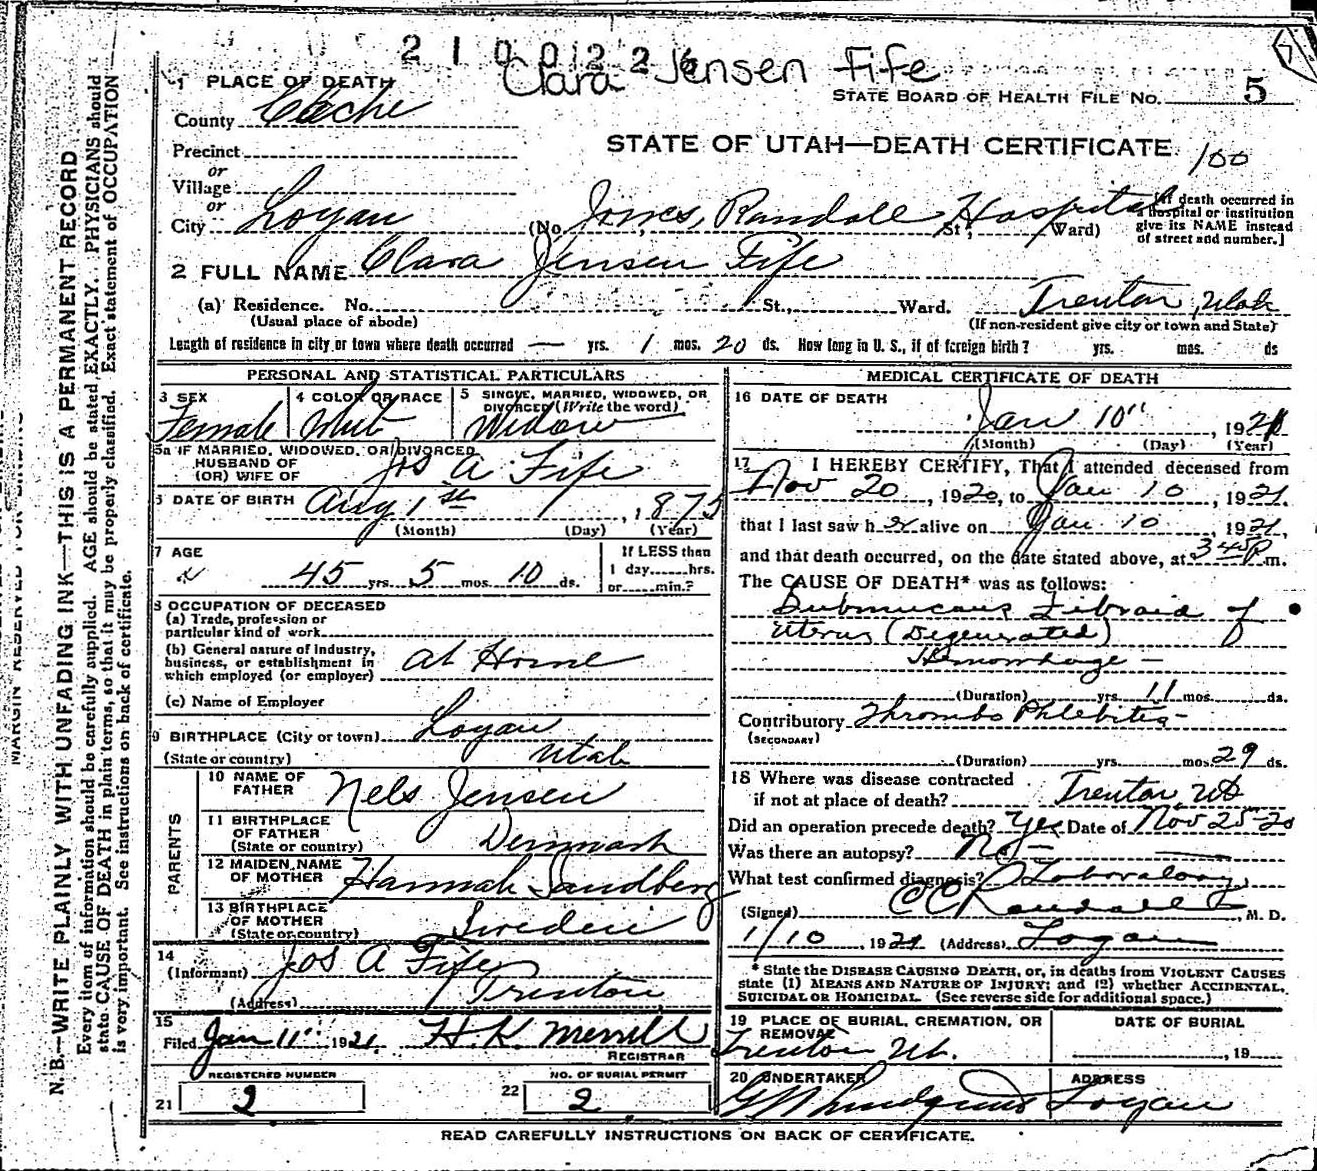 2 1 0 0 2 2 6
Clara Jensen Fife
1 PLACE OF DEATH
STATE BOARD OF HEALTH FILE No. 5
County Cache
STATE OF UTAH—DEATH CERTIFICATE 100
Precinct
or
Village
or
City Logan (No. Jones, Randall Hospital St; Ward)
[If death occurred in
a hospital or institution
give its NAME instead
of street and number.]
2 FULL NAME Clara Jensen Fife
(a) Residence. No. St., Ward. Trenton, Utah
(Usual place of abode) (If non-resident give city or town and State)
Length of residence in city or town where death occurred — yrs. 1 mos. 20 ds. How long in U. S., if of foreign birth? yrs. mos. ds
PERSONAL AND STATISTICAL PARTICULARS
3 SEX
Female
4 COLOR OR RACE
Whit
5 SINGLE, MARRIED, WIDOWED, OR
DIVORCED (Write the word)
Widow
5a IF MARRIED, WIDOWED, OR DIVORCED
HUSBAND OF
(OR) WIFE OF Jos A Fife
6 DATE OF BIRTH Aug 1st, 1875
(Month) (Day) (Year)
7 AGE
45 yrs. 5 mos. 10 ds.
If LESS than
1 day......hrs.
or......min.?
8 OCCUPATION OF DECEASED
(a) Trade, profession or
particular kind of work
(b) General nature of industry,
business, or establishment in
which employed (or employer) at Home
(c) Name of Employer
9 BIRTHPLACE (City or town) Logan
(State or country) Utah
PARENTS
10 NAME OF
FATHER Nels Jensen
11 BIRTHPLACE
OF FATHER
(State or country) Denmark
12 MAIDEN NAME
OF MOTHER Hannah Sandberg
13 BIRTHPLACE
OF MOTHER
(State or country) Sweden
14
(Informant) Jos A Fife
(Address) Trenton
15
Filed Jan 11" 1921. H. K. Merrill
REGISTRAR
REGISTERED NUMBER
21 2
NO. OF BURIAL PERMIT
22 2
MEDICAL CERTIFICATE OF DEATH
16 DATE OF DEATH
Jan 10", 1921
(Month) (Day) (Year)
17 I HEREBY CERTIFY, That I attended deceased from
Nov 20, 1920, to Jan 10, 1921.
that I last saw her alive on Jan 10, 1921,
and that death occurred, on the date stated above, at 345P m.
The CAUSE OF DEATH* was as follows:
Submucaus Fibroid of
Uterus (Degenerated)
Hemorrhage —
(Duration) yrs. 11 mos. ds.
Contributory Thrombo Phlebitis
(SECONDARY)
(Duration) yrs. mos. 29 ds.
18 Where was disease contracted
if not at place of death? Trenton, Ut
Did an operation precede death? Yes Date of Nov 25-20
Was there an autopsy? No —
What test confirmed diagnosis? Laboratory
(Signed) C C Randall, M. D.
1/10, 1921 (Address) Logan
* State the DISEASE CAUSING DEATH, or, in deaths from VIOLENT CAUSES
state (1) MEANS AND NATURE OF INJURY; and (2) whether ACCIDENTAL,
SUICIDAL OR HOMICIDAL. (See reverse side for additional space.)
19 PLACE OF BURIAL, CREMATION, OR
REMOVAL
Trenton Ut.
DATE OF BURIAL
, 19
20 UNDERTAKER
Lundquist
ADDRESS
Logan
READ CAREFULLY INSTRUCTIONS ON BACK OF CERTIFICATE.
N. B.—WRITE PLAINLY WITH UNFADING INK—THIS IS A PERMANENT RECORD
Every item of information should be carefully supplied. AGE should be stated EXACTLY. PHYSICIANS should
state CAUSE OF DEATH in plain terms, so that it may be properly classified. Exact statement of OCCUPATION
is very important. See instructions on back of certificate.
MARGIN RESERVED FOR BINDING